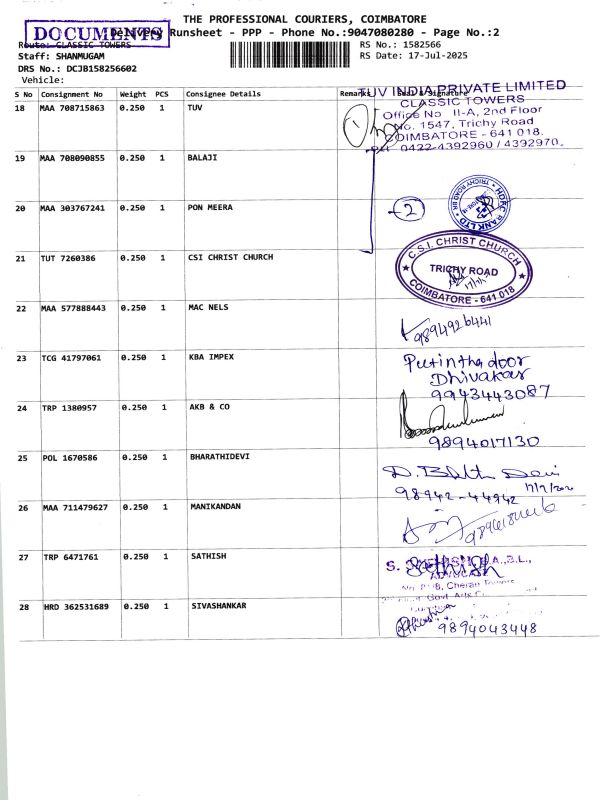 THE PROFESSIONAL COURIERS, COIMBATORE
DOCUMENTS
Delivery Runsheet - PPP - Phone No.:9047080280 - Page No.:2
Route: CLASSIC TOWERS
RS No.: 1582566
Staff: SHANMUGAM
RS Date: 17-Jul-2025
DRS No.: DCJB158256602
Vehicle:
S No Consignment No Weight PCS Consignee Details Remarks Seal & Signature
18 MAA 708715863 0.250 1 TUV
TUV INDIA PRIVATE LIMITED
CLASSIC TOWERS
Office No II-A, 2nd Floor
No. 1547, Trichy Road
COIMBATORE - 641 018.
PH 0422-4392960 / 4392970.
19 MAA 708090855 0.250 1 BALAJI
20 MAA 303767241 0.250 1 PON MEERA
2
HDFC BANK LTD
TRICHY ROAD BR
21 TUT 7260386 0.250 1 CSI CHRIST CHURCH
C.S.I. CHRIST CHURCH
TRICHY ROAD
COIMBATORE - 641 018
22 MAA 577888443 0.250 1 MAC NELS
9894926441
23 TCG 41797061 0.250 1 KBA IMPEX
Put in tha door
Dhivakar
9943443087
24 TRP 1380957 0.250 1 AKB & CO
9894017130
25 POL 1670586 0.250 1 BHARATHIDEVI
98942-44942
26 MAA 711479627 0.250 1 MANIKANDAN
27 TRP 6471761 0.250 1 SATHISH
Sathish
ADVOCATE
28 HRD 362531689 0.250 1 SIVASHANKAR
9894043448